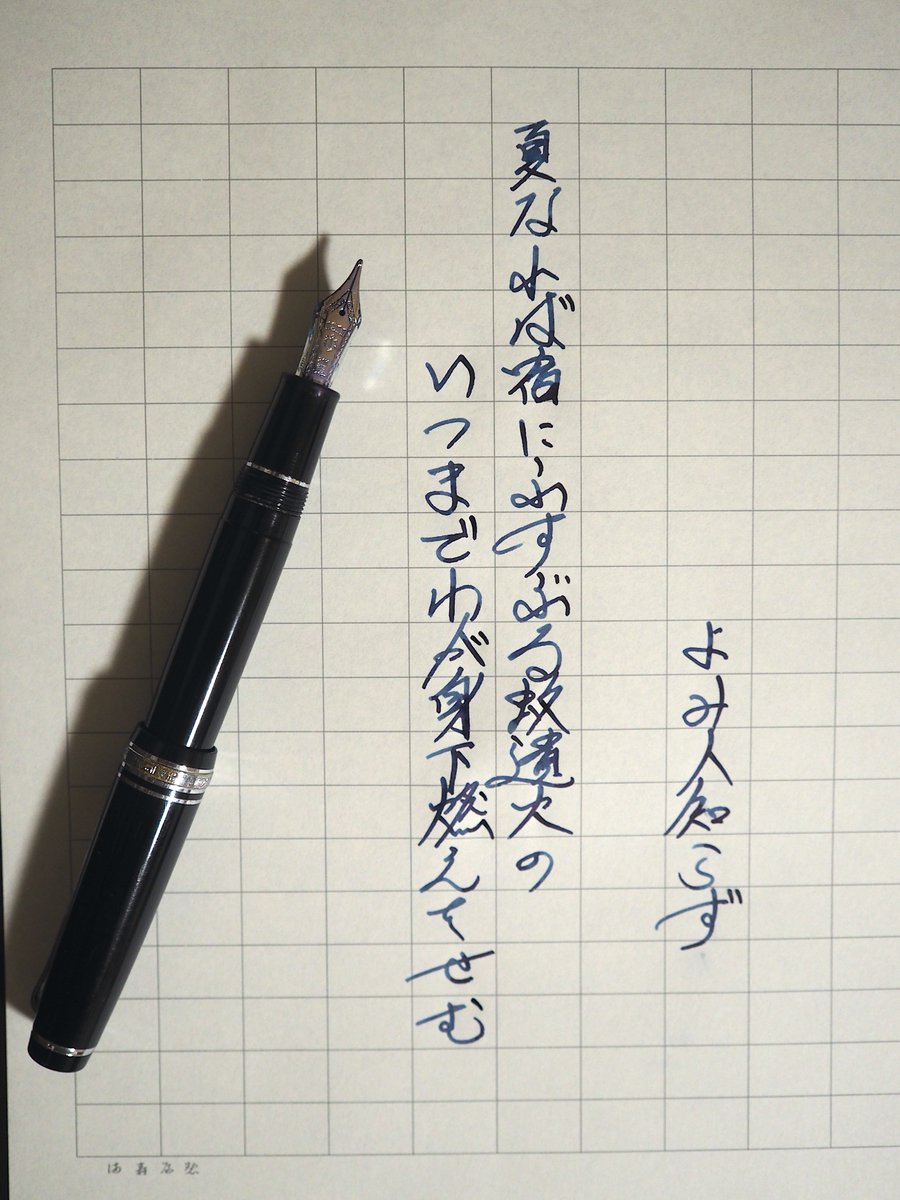 よみ人知らず
夏なれば宿にふすぶる蚊遣火の
いつまでわが身下燃えをせむ